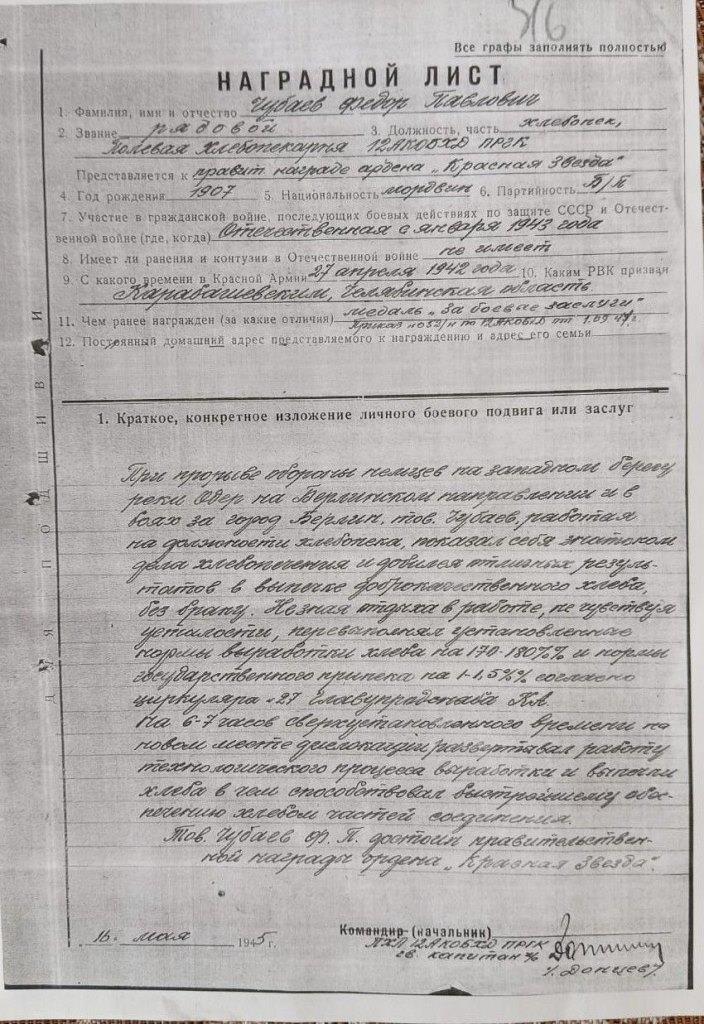 3/6
Все графы заполнять полностью
НАГРАДНОЙ ЛИСТ
1. Фамилия, имя и отчество Чубаев Федор Павлович
2. Звание рядовой 3. Должность, часть хлебопек,
Полевая Хлебопекарня 12АКОБХД ПРГК
Представляется к правит награде ордена „Красная Звезда"
4. Год рождения 1907 5. Национальность мордвин 6. Партийность Б/П
7. Участие в гражданской войне, последующих боевых действиях по защите СССР и Отечест-
венной войне (где, когда) Отечественная с января 1943 года
8. Имеет ли ранения и контузии в Отечественной войне не имеет
9. С какого времени в Красной Армии 27 апреля 1942 года 10. Каким РВК призван
Карабашевским, Челябинская область
11. Чем ранее награжден (за какие отличия) медаль „За боевые заслуги"
Приказ по 12АКОБХД
12. Постоянный домашний адрес представляемого к награждению и адрес его семьи
ДЛЯ ПОДШИВКИ
1. Краткое, конкретное изложение личного боевого подвига или заслуг
При прорыве обороны немцев на западном берегу
реки Одер на Берлинском направлении и в
боях за город Берлин, тов. Чубаев, работая
на должности хлебопека, показал себя знатоком
дела хлебопечения и добился отличных резуль-
татов в выпечке доброкачественного хлеба,
без браку. Незная отдыха в работе, не чувствуя
усталости, перевыполнял установленные
нормы выработки хлеба на 170-180%% и нормы
государственного припека на 1-1,5%% согласно
циркуляра №27 Главупродснаба КА.
На 6-7 часов сверхустановленного времени на
новом месте дислокации развертывал работу
технологического процесса выработки и выпечки
хлеба в чем способствовал быстрейшему обес-
печению хлебом частей соединения.
Тов. Чубаев Ф. П. достоин правительствен-
ной награды ордена „Красная Звезда".
Командир (начальник)
ПХП 12АКОБХД ПРГК
16. мая 1945 г.
гв. капитан и/с
/. Донцев /.